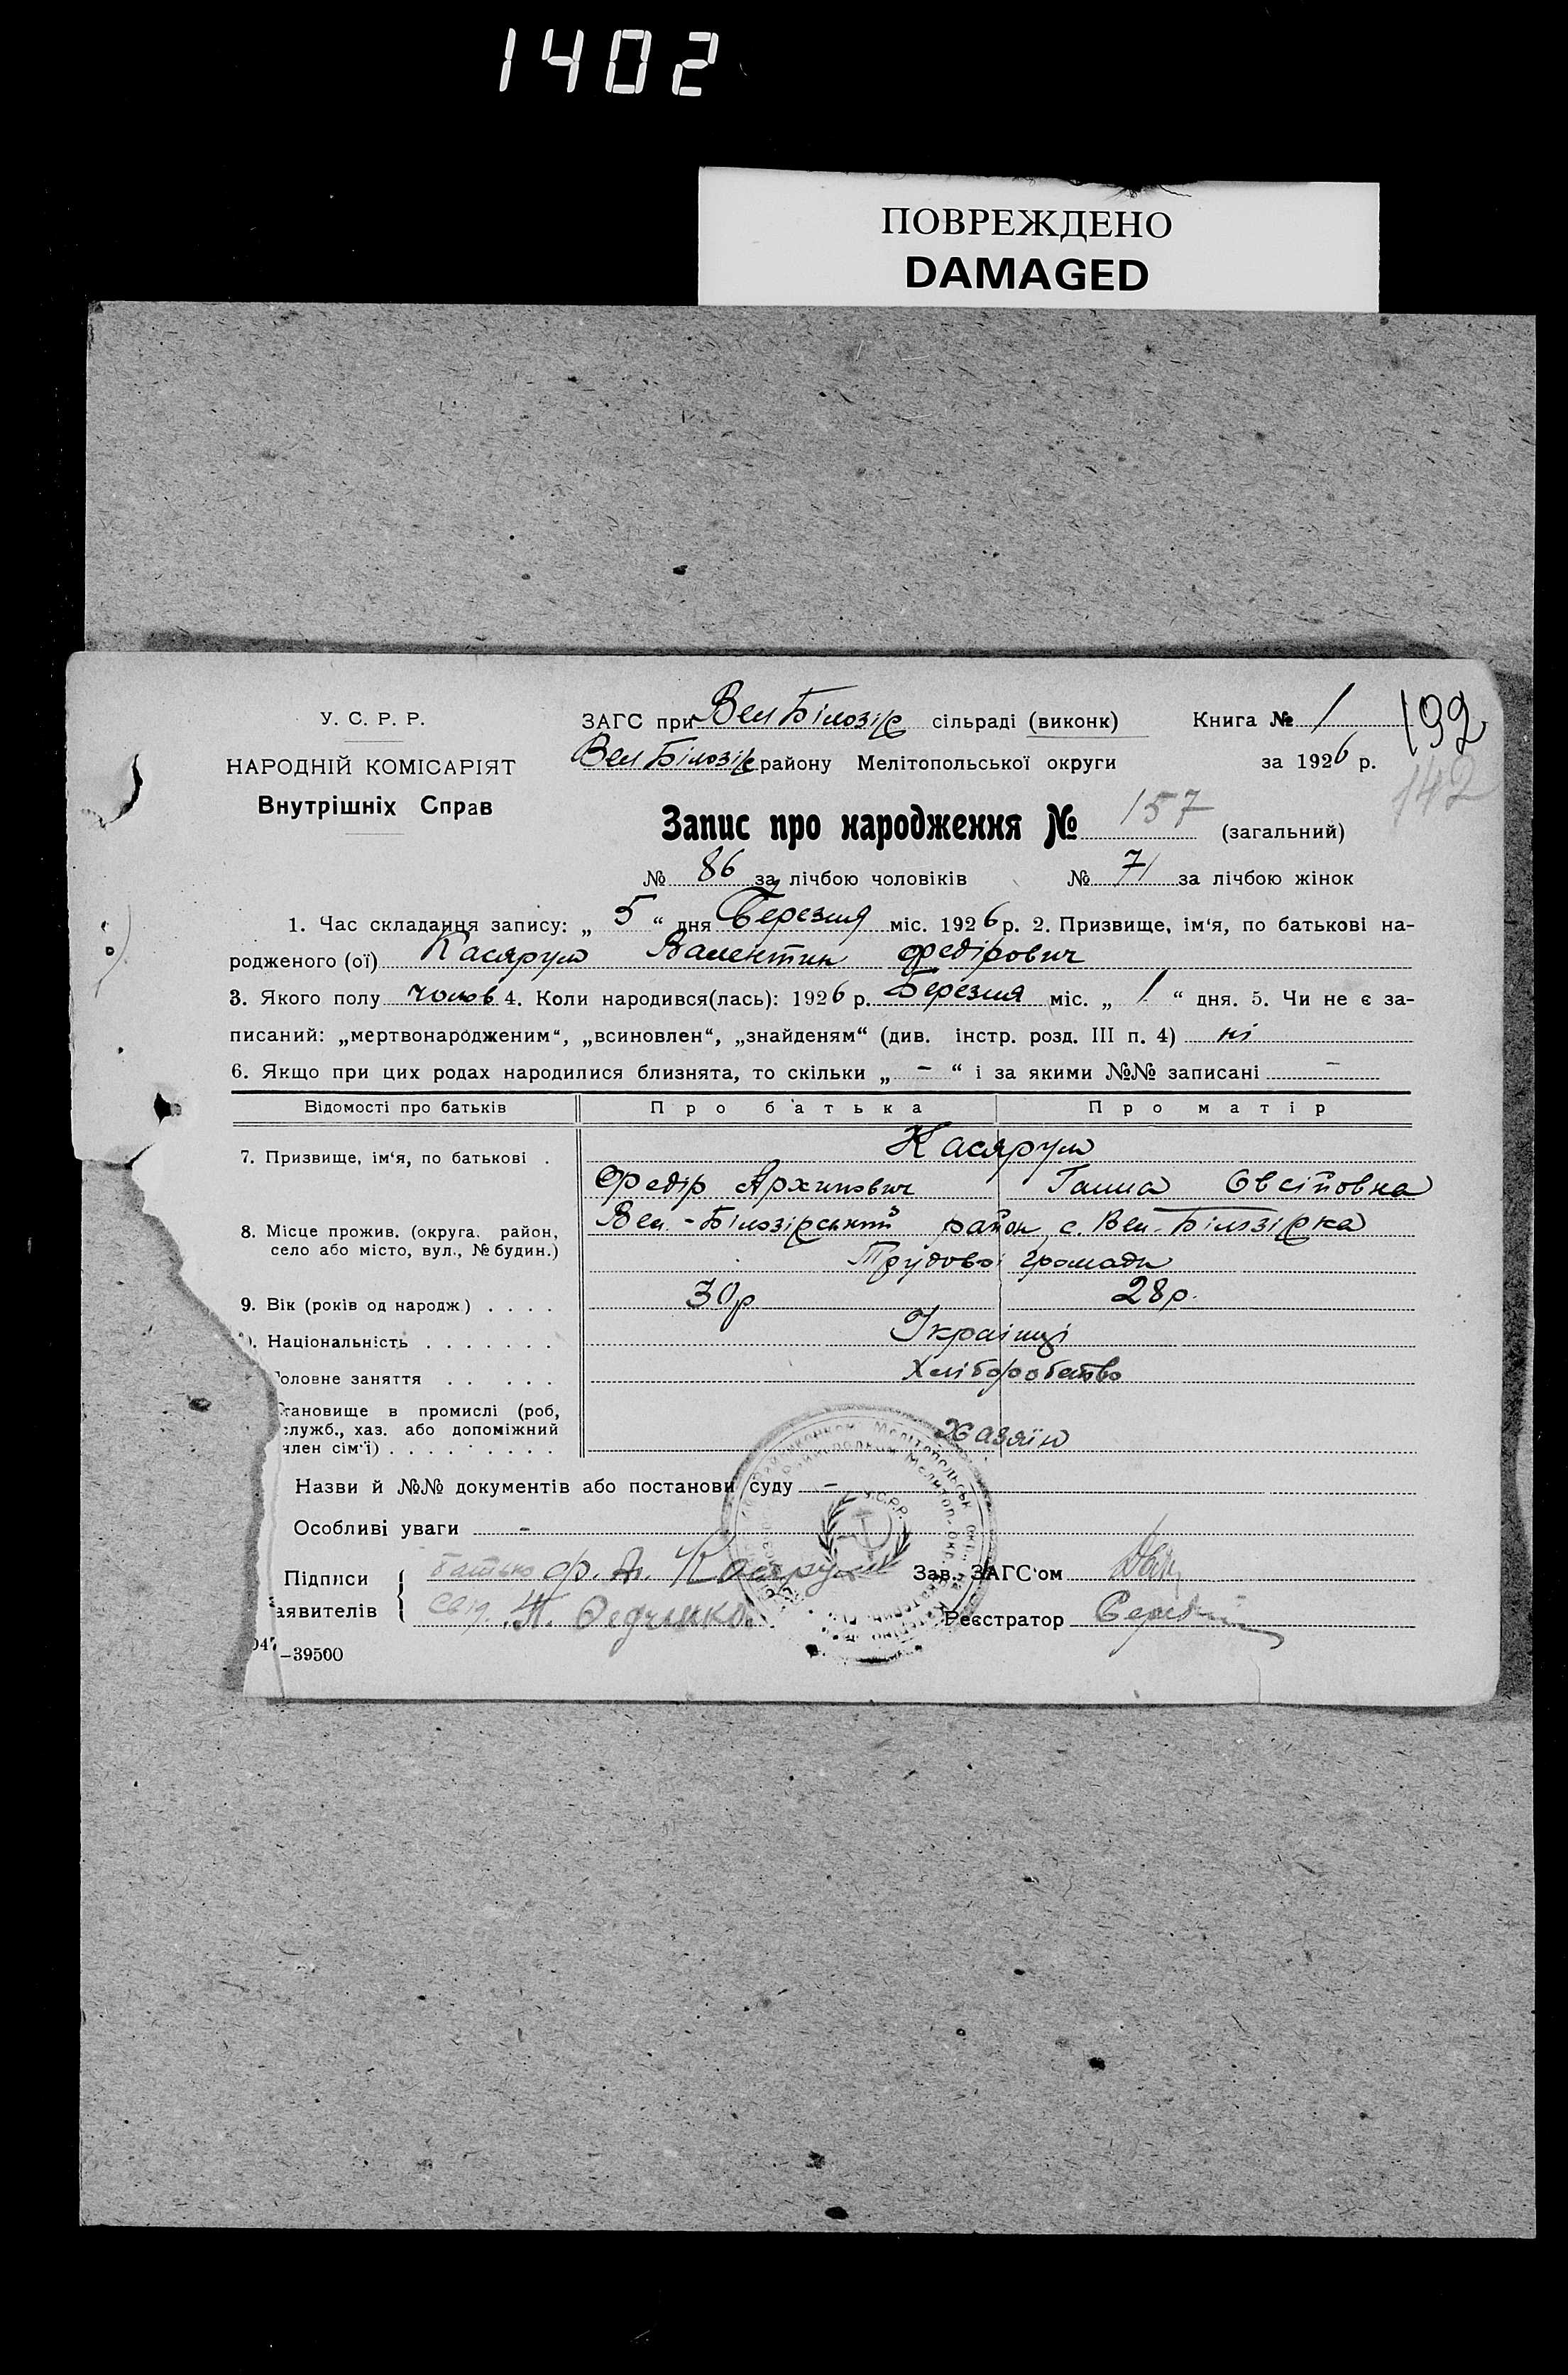 1402
ПОВРЕЖДЕНО
DAMAGED
У. С. Р. Р.
НАРОДНІЙ КОМІСАРІЯТ
Внутрішніх Справ
ЗАГС при Вел Білозір сільраді (виконк) Книга № 1 192
Вел Білозір району Мелітопольської округи за 1926 р.
142
Запис про народження № 157 (загальний)
№ 86 за лічбою чоловіків № 71 за лічбою жінок
1. Час складання запису: „ 5 “ дня Березня міс. 1926 р. 2. Призвище, ім‘я, по батькові на-
родженого (ої) Касярум Валентин Федірович
3. Якого полу чолов 4. Коли народився(лась): 1926 р. Березня міс. „ 1 “ дня. 5. Чи не є за-
писаний: „мертвонародженим“, „всиновлен“, „знайденям“ (див. інстр. розд. III п. 4) ні
6. Якщо при цих родах народилися близнята, то скільки „ – “ і за якими №№ записані –
Відомості про батьків Про батька Про матір
7. Призвище, ім‘я, по батькові . Касярум
Федір Архипович Ганна Овсіповна
8. Місце прожив. (округа. район, село або місто, вул., № будин.) Вел.-Білозірський район, с. Вел-Білозірка
Трудової громади
9. Вік (років од народж) . . . . 30р 28р.
. Національність . . . . . . . Українці
Головне заняття . . . . . Хліборобство
Становище в промислі (роб,
служб., хаз. або допоміжний
член сім‘ї) . . . . . . . . . Хазяїн
Назви й №№ документів або постанови суду –
Особливі уваги –
У.С.Р.Р.
Підписи батько Ф. А. Касярум Зав. ЗАГС‘ом
аявителів свід. Реєстратор
04
–39500